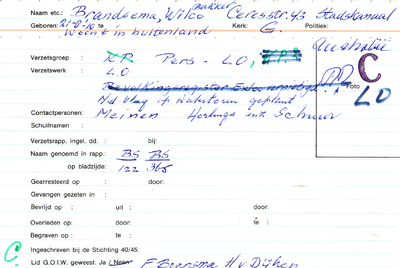 Naam etc.: Brandsema, Wilco bakker Ceresstr. 43 Stadskanaal
Geboren: 21-8-10 te Kerk: G. Politiek:
Woont in buitenland Australië
Verzetsgroep : K.P. Pers - L.O,
Verzetswerk : L.O
Bevolkingsregister
Ned vlag op watertoren geplant Foto
C
LO
Contactpersonen: Meinen Herlings Schuur
Schuilnaam :
Verzetsrapp. ingel. dd. : bij:
Naam genoemd in rapp.: BS BS
op bladzijde: 122 365
Gearresteerd op : door:
Gevangen gezeten in :
Bevrijd op : uit : door:
Overleden op : door: te :
Begraven op : te :
C Ingeschreven bij de Stichting 40/45:
Lid G.O.I.W. geweest: Ja / Neen F Bransma H v Dijken